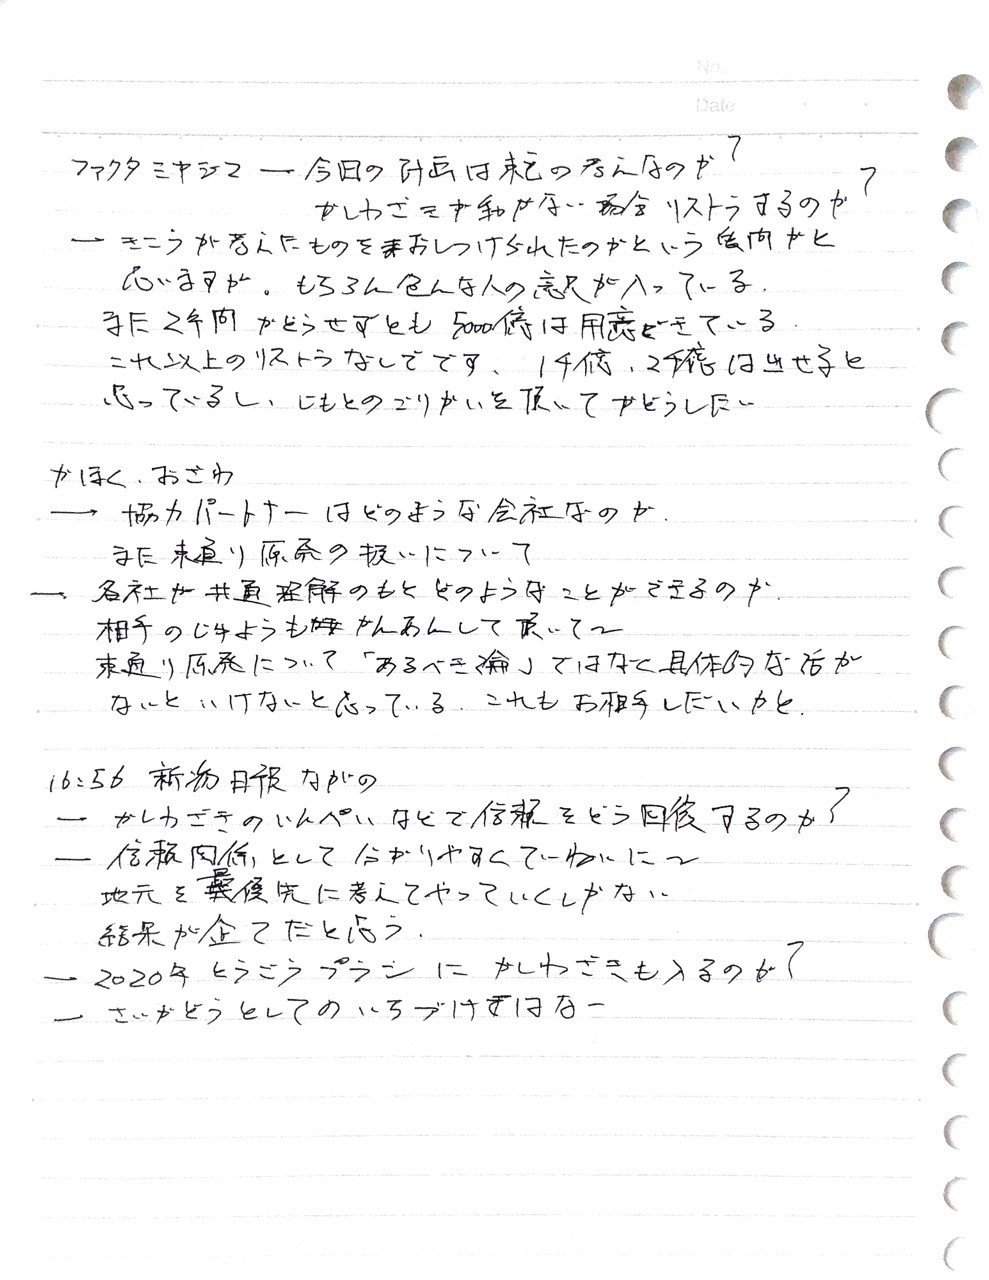 No.
Date
ファクタ ミヤジマ ― 今日の計画は東電の考えなのか?
かしわざきが動かない場合リストラするのか?
― きこうが考えたものをおしつけられたのかという質問かと
思いますが。もちろん色んな人の意見が入っている.
まだ2年間かどうせずとも5000億は用意できている.
これ以上のリストラなしでです、1千億、2千億は出せると
思っているし、じもとのごりかいを頂いてかどうしたい
かほく、おざわ
→ 協力パートナーはどのような会社なのか.
また東通り原発の扱いについて
→ 各社が共通理解のもとどのようなことができるのか.
相手のじようもかんあんして頂いて〜
東通り原発について「あるべき論」ではなく具体的な話が
ないといけないと思っている. これもお相手しだいかと.
16:56 新潟日報 ながの
― かしわざきのいんぺいなどで信頼をどう回復するのか?
― 信頼関係として分かりやすくていねいに〜
地元を最優先に考えてやっていくしかない
結果が全てだと思う.
― 2020年とうごうプランにかしわざきも入るのか?
― さいかどうとしてのいちづけはなー